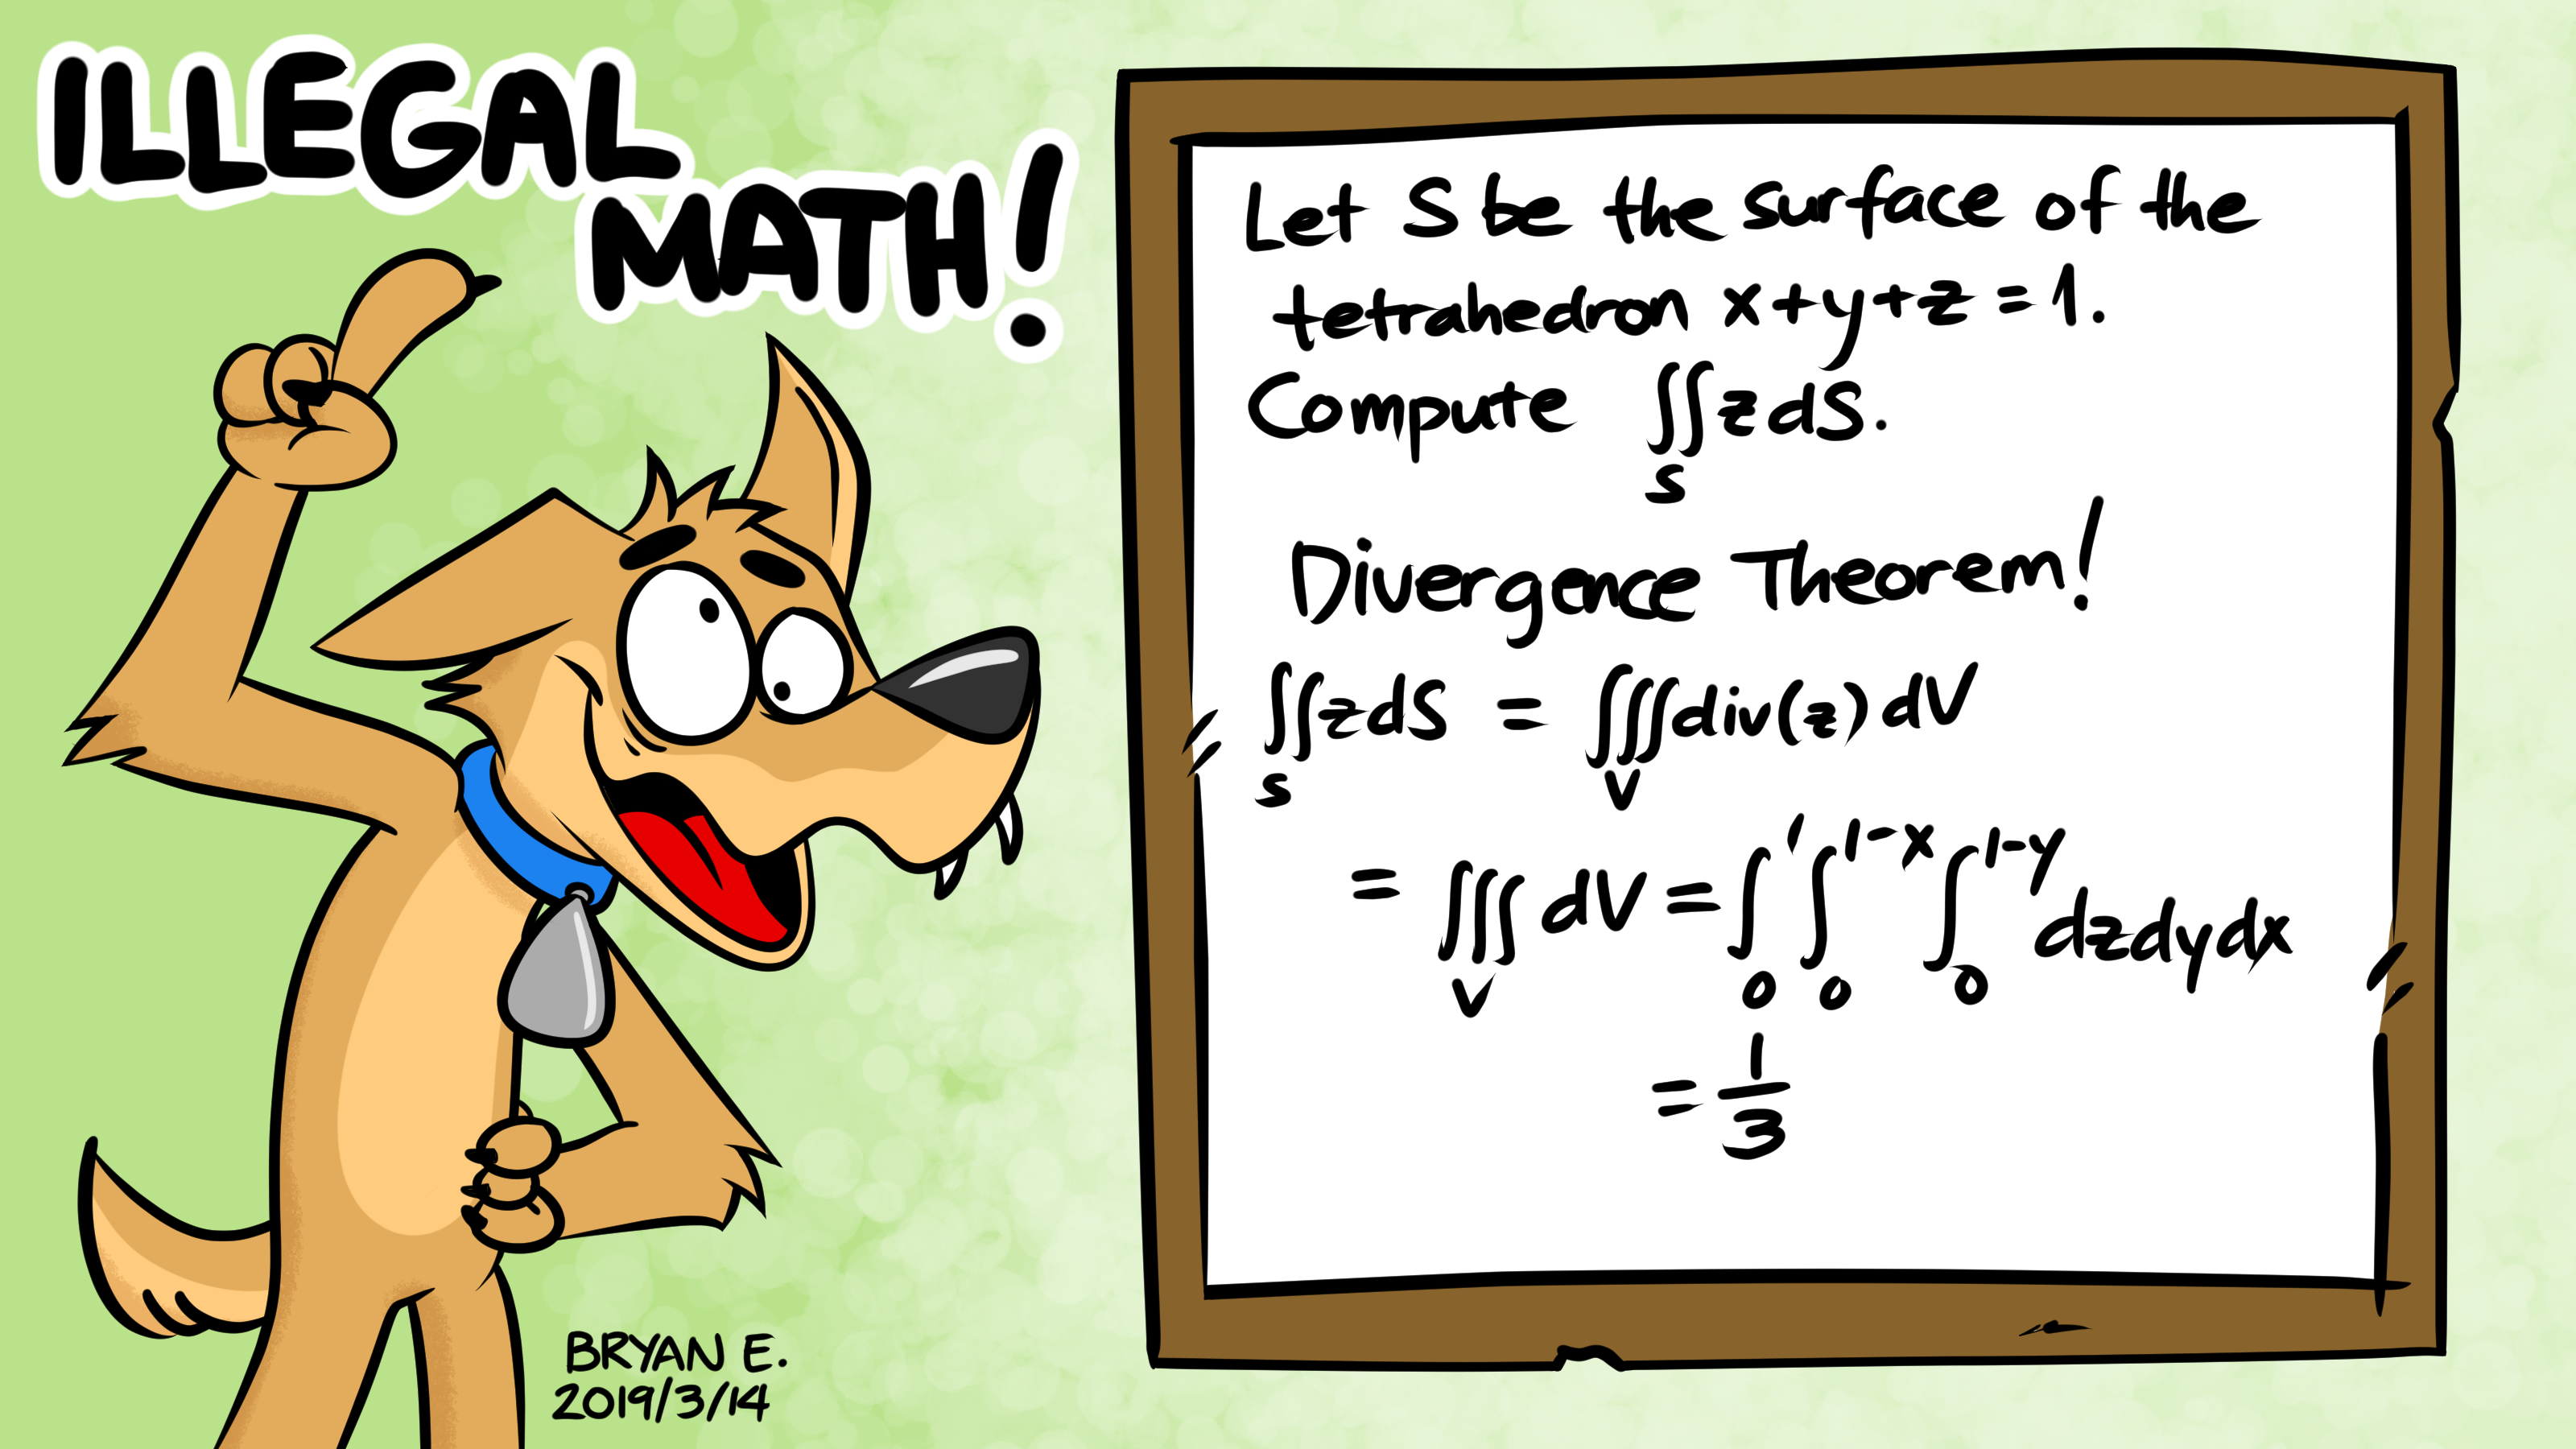 ILLEGAL
MATH!
Let S be the surface of the
tetrahedron x+y+z=1.
Compute ∬_S z dS.
Divergence Theorem!
∬_S z dS = ∭_V div(z) dV
= ∭_V dV = ∫_0^1 ∫_0^{1-x} ∫_0^{1-y} dz dy dx
= 1/3
BRYAN E.
2019/3/14